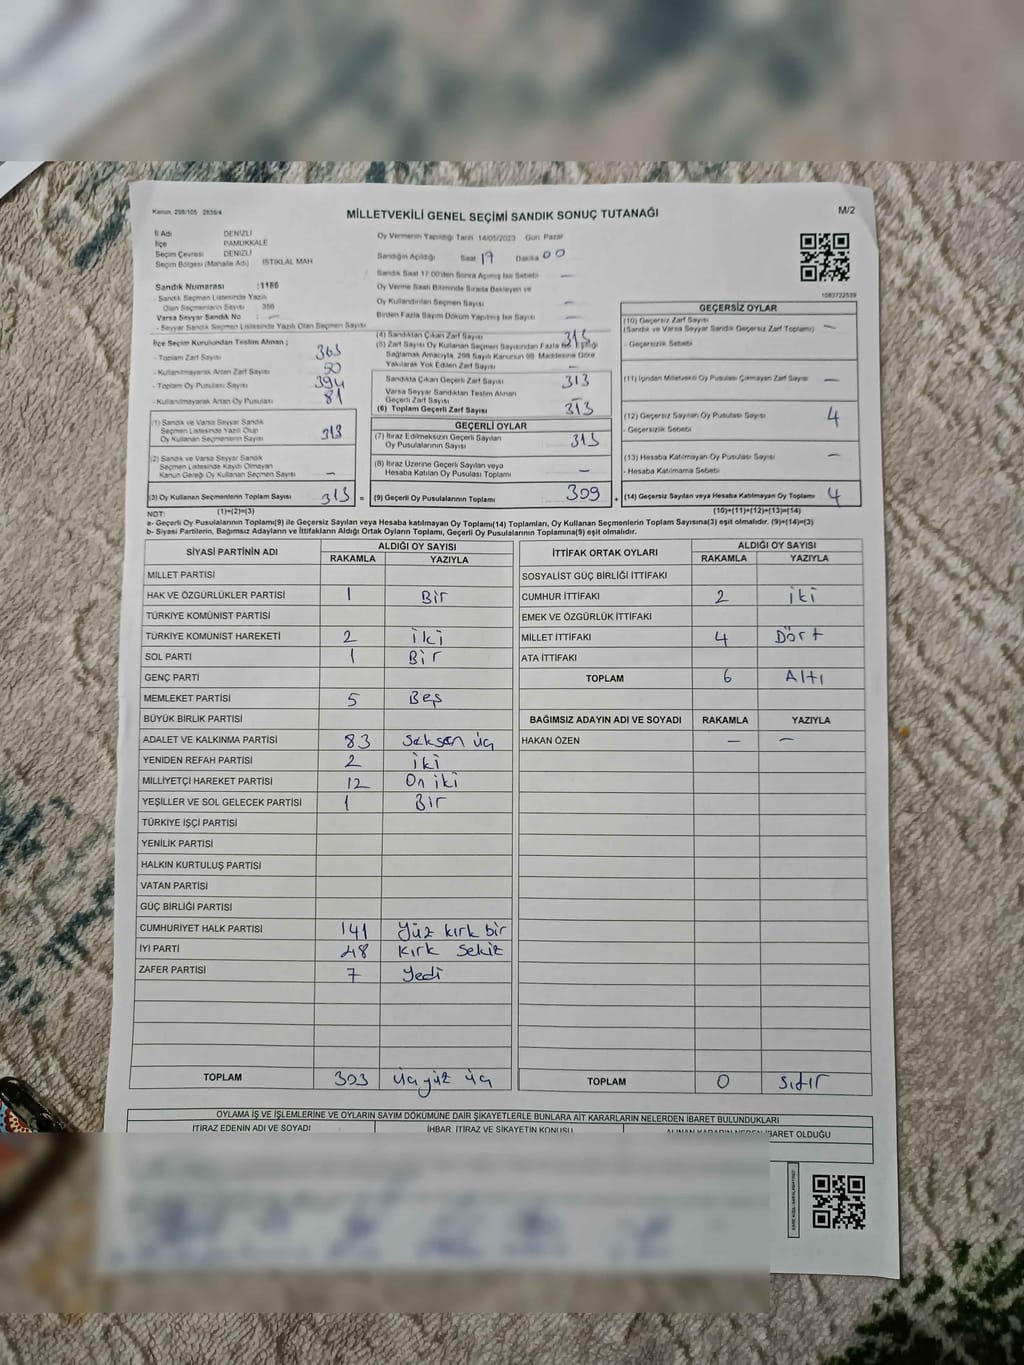 Kanun. 298/105 2839/4
MİLLETVEKİLİ GENEL SEÇİMİ SANDIK SONUÇ TUTANAĞI
M/2
İl Adı DENİZLİ
İlçe PAMUKKALE
Seçim Çevresi DENİZLİ
Seçim Bölgesi (Mahalle Adı) İSTİKLAL MAH
Oy Vermenin Yapıldığı Tarih 14/05/2023 Gün Pazar
Sandığın Açıldığı Saat 17 Dakika 00
Sandık Saat 17:00'den Sonra Açılmış İse Sebebi —
Oy Verme Saati Bitiminde Sırada Bekleyen ve
Oy Kullandırılan Seçmen Sayısı —
Birden Fazla Sayım Döküm Yapılmış İse Sayısı —
Sandık Numarası :1186
- Sandık Seçmen Listesinde Yazılı
Olan Seçmenlerin Sayısı 356
Varsa Seyyar Sandık No : —
- Seyyar Sandık Seçmen Listesinde Yazılı Olan Seçmen Sayısı
İlçe Seçim Kurulundan Teslim Alınan ;
- Toplam Zarf Sayısı 363
- Kullanılmayarak Artan Zarf Sayısı 50
- Toplam Oy Pusulası Sayısı 394
- Kullanılmayarak Artan Oy Pusulası 81
(1) Sandık ve Varsa Seyyar Sandık
Seçmen Listesinde Yazılı Olup
Oy Kullanan Seçmenlerin Sayısı 313
(2) Sandık ve Varsa Seyyar Sandık
Seçmen Listesinde Kaydı Olmayan
Kanun Gereği Oy Kullanan Seçmen Sayısı —
(3) Oy Kullanan Seçmenlerin Toplam Sayısı 313 =
(4) Sandıktan Çıkan Zarf Sayısı 313
(5) Zarf Sayısı Oy Kullanan Seçmen Sayısından Fazla İse, Eşitliği
Sağlamak Amacıyla, 298 Sayılı Kanunun 98. Maddesine Göre
Yakılarak Yok Edilen Zarf Sayısı —
Sandıkta Çıkan Geçerli Zarf Sayısı 313
Varsa Seyyar Sandıktan Teslim Alınan
Geçerli Zarf Sayısı —
(6) Toplam Geçerli Zarf Sayısı 313
GEÇERLİ OYLAR
(7) İtiraz Edilmeksizin Geçerli Sayılan
Oy Pusulalarının Sayısı 313
(8) İtiraz Üzerine Geçerli Sayılan veya
Hesaba Katılan Oy Pusulası Toplamı —
(9) Geçerli Oy Pusulalarının Toplamı 309 +
1083722539
GEÇERSİZ OYLAR
(10) Geçersiz Zarf Sayısı
(Sandık ve Varsa Seyyar Sandık Geçersiz Zarf Toplamı) —
- Geçersizlik Sebebi
(11) İçinden Milletvekili Oy Pusulası Çıkmayan Zarf Sayısı —
(12) Geçersiz Sayılan Oy Pusulası Sayısı 4
- Geçersizlik Sebebi
(13) Hesaba Katılmayan Oy Pusulası Sayısı —
- Hesaba Katılmama Sebebi
(14) Geçersiz Sayılan veya Hesaba Katılmayan Oy Toplamı 4
NOT: (1)+(2)=(3) (10)+(11)+(12)+(13)=(14)
a- Geçerli Oy Pusulalarının Toplamı(9) ile Geçersiz Sayılan veya Hesaba katılmayan Oy Toplam(14) Toplamları, Oy Kullanan Seçmenlerin Toplam Sayısına(3) eşit olmalıdır. (9)+(14)=(3)
b- Siyasi Partilerin, Bağımsız Adayların ve İttifakların Aldığı Ortak Oyların Toplamı, Geçerli Oy Pusulalarının Toplamına(9) eşit olmalıdır.
SİYASİ PARTİNİN ADI ALDIĞI OY SAYISI
RAKAMLA YAZIYLA
MİLLET PARTİSİ
HAK VE ÖZGÜRLÜKLER PARTİSİ 1 Bir
TÜRKİYE KOMÜNİST PARTİSİ
TÜRKİYE KOMÜNİST HAREKETİ 2 iki
SOL PARTİ 1 Bir
GENÇ PARTİ
MEMLEKET PARTİSİ 5 Beş
BÜYÜK BİRLİK PARTİSİ
ADALET VE KALKINMA PARTİSİ 83 Seksen üç
YENİDEN REFAH PARTİSİ 2 iki
MİLLİYETÇİ HAREKET PARTİSİ 12 On iki
YEŞİLLER VE SOL GELECEK PARTİSİ 1 Bir
TÜRKİYE İŞÇİ PARTİSİ
YENİLİK PARTİSİ
HALKIN KURTULUŞ PARTİSİ
VATAN PARTİSİ
GÜÇ BİRLİĞİ PARTİSİ
CUMHURİYET HALK PARTİSİ 141 Yüz kırk bir
İYİ PARTİ 48 Kırk sekiz
ZAFER PARTİSİ 7 Yedi
TOPLAM 303 üç yüz üç
İTTİFAK ORTAK OYLARI ALDIĞI OY SAYISI
RAKAMLA YAZIYLA
SOSYALİST GÜÇ BİRLİĞİ İTTİFAKI
CUMHUR İTTİFAKI 2 iki
EMEK VE ÖZGÜRLÜK İTTİFAKI
MİLLET İTTİFAKI 4 Dört
ATA İTTİFAKI
TOPLAM 6 Altı
BAĞIMSIZ ADAYIN ADI VE SOYADI RAKAMLA YAZIYLA
HAKAN ÖZEN — —
TOPLAM 0 Sıfır
OYLAMA İŞ VE İŞLEMLERİNE VE OYLARIN SAYIM DÖKÜMÜNE DAİR ŞİKAYETLERLE BUNLARA AİT KARARLARIN NELERDEN İBARET BULUNDUKLARI
İTİRAZ EDENİN ADI VE SOYADI İHBAR, İTİRAZ VE ŞİKAYETİN KONUSU ALINAN KARARIN NEDEN İBARET OLDUĞU